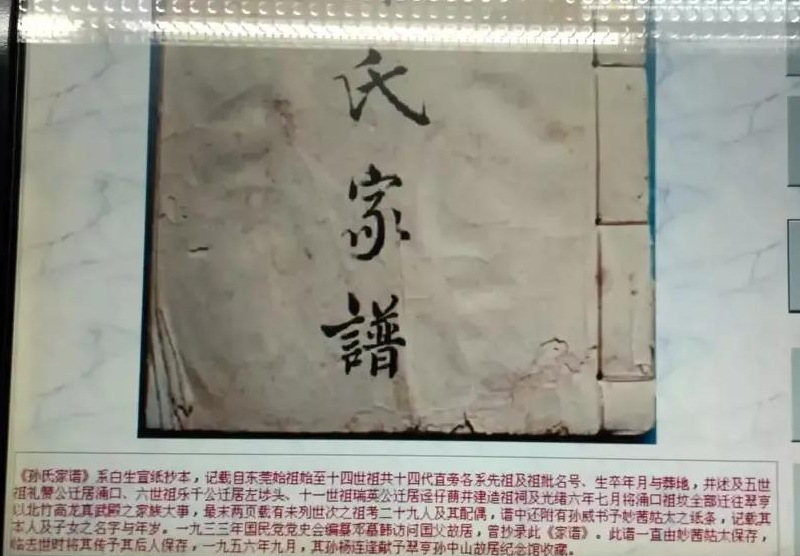 氏
家
譜
《孙氏家谱》系白生宣纸抄本，记载自东莞始祖始至十四世祖共十四代直旁各系先祖及祖妣名号、生卒年月与葬地，并述及五世
祖礼赞公迁居涌口、六世祖乐千公迁居左埗头、十一世祖瑞英公迁居迳仔蓢并建造祖祠及光绪六年七月将涌口祖坟全部迁往翠亨
以北竹高龙真武殿之家族大事，最末两页载有未列世次之祖考二十九人及其配偶，谱中还附有孙威书子妙茜姑太之纸条，记载其
本人及子女之名字与年岁。一九三三年国民党党史会编纂邓慕韩访问国父故居，曾抄录此《家谱》。此谱一直由妙茜姑太保存，
临去世时将其传予其后人保存，一九五六年九月，其孙杨连逢献予翠亨孙中山故居纪念馆收藏。